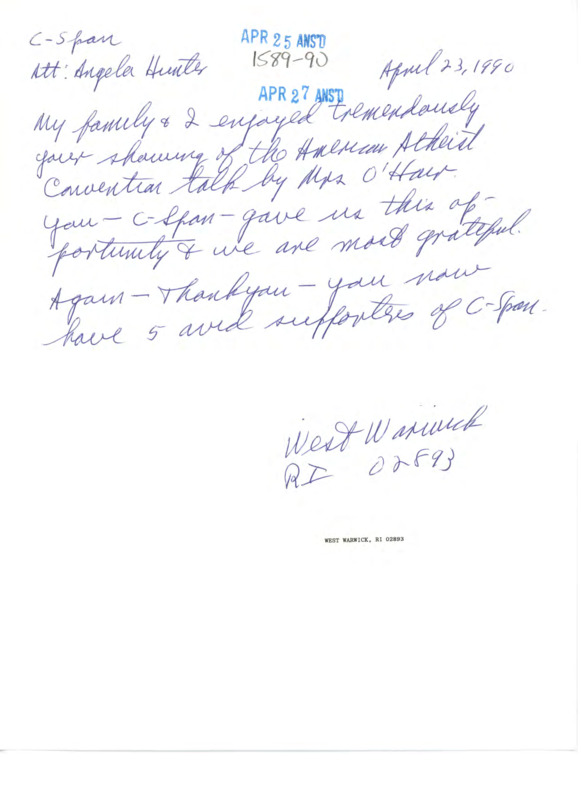 C-Span
APR 25 ANS'D
1589-90
Att: Angela Hunter
April 23, 1990
APR 27 ANS'D
My family & I enjoyed tremendously
your showing of the American Atheist
Convention talk by Mrs O'Hair.
You — C-Span — gave us this op-
portunity & we are most grateful.
Again — Thankyou — you now
have 5 avid supporters of C-Span.
West Warwick
RI 02893
WEST WARWICK, RI 02893